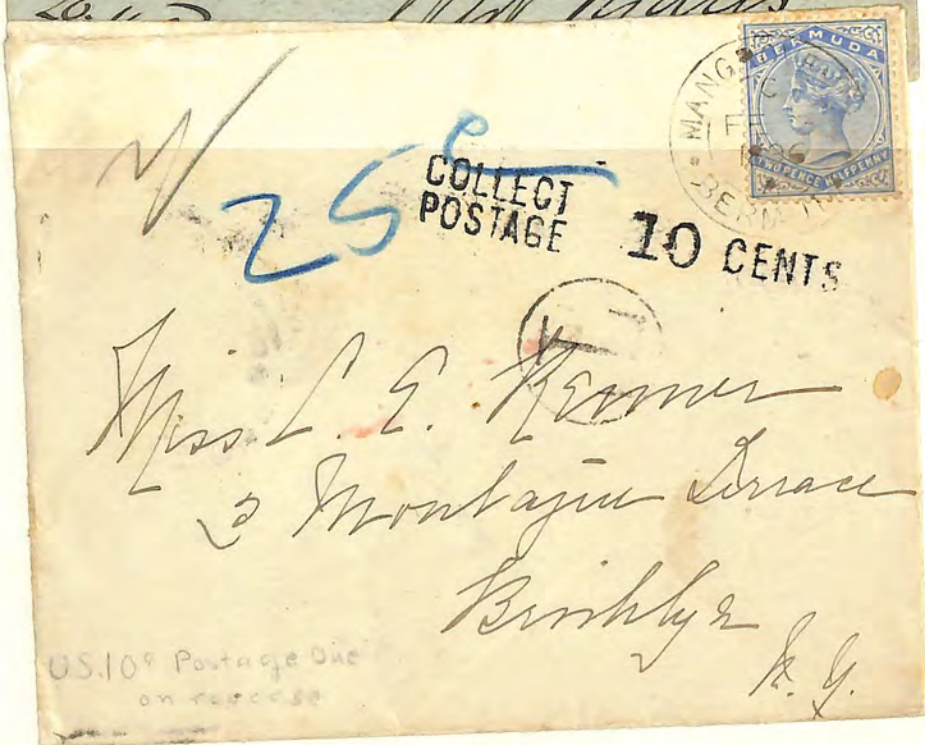 BERMUDA
TWO PENCE HALFPENNY
MANG
C
FE
BERMU
25c
COLLECT
POSTAGE
10 CENTS
T
Miss L. E. Remer
2 Montague Terrace
Brooklyn
N. Y.
U.S. 10c Postage Due
on reverse